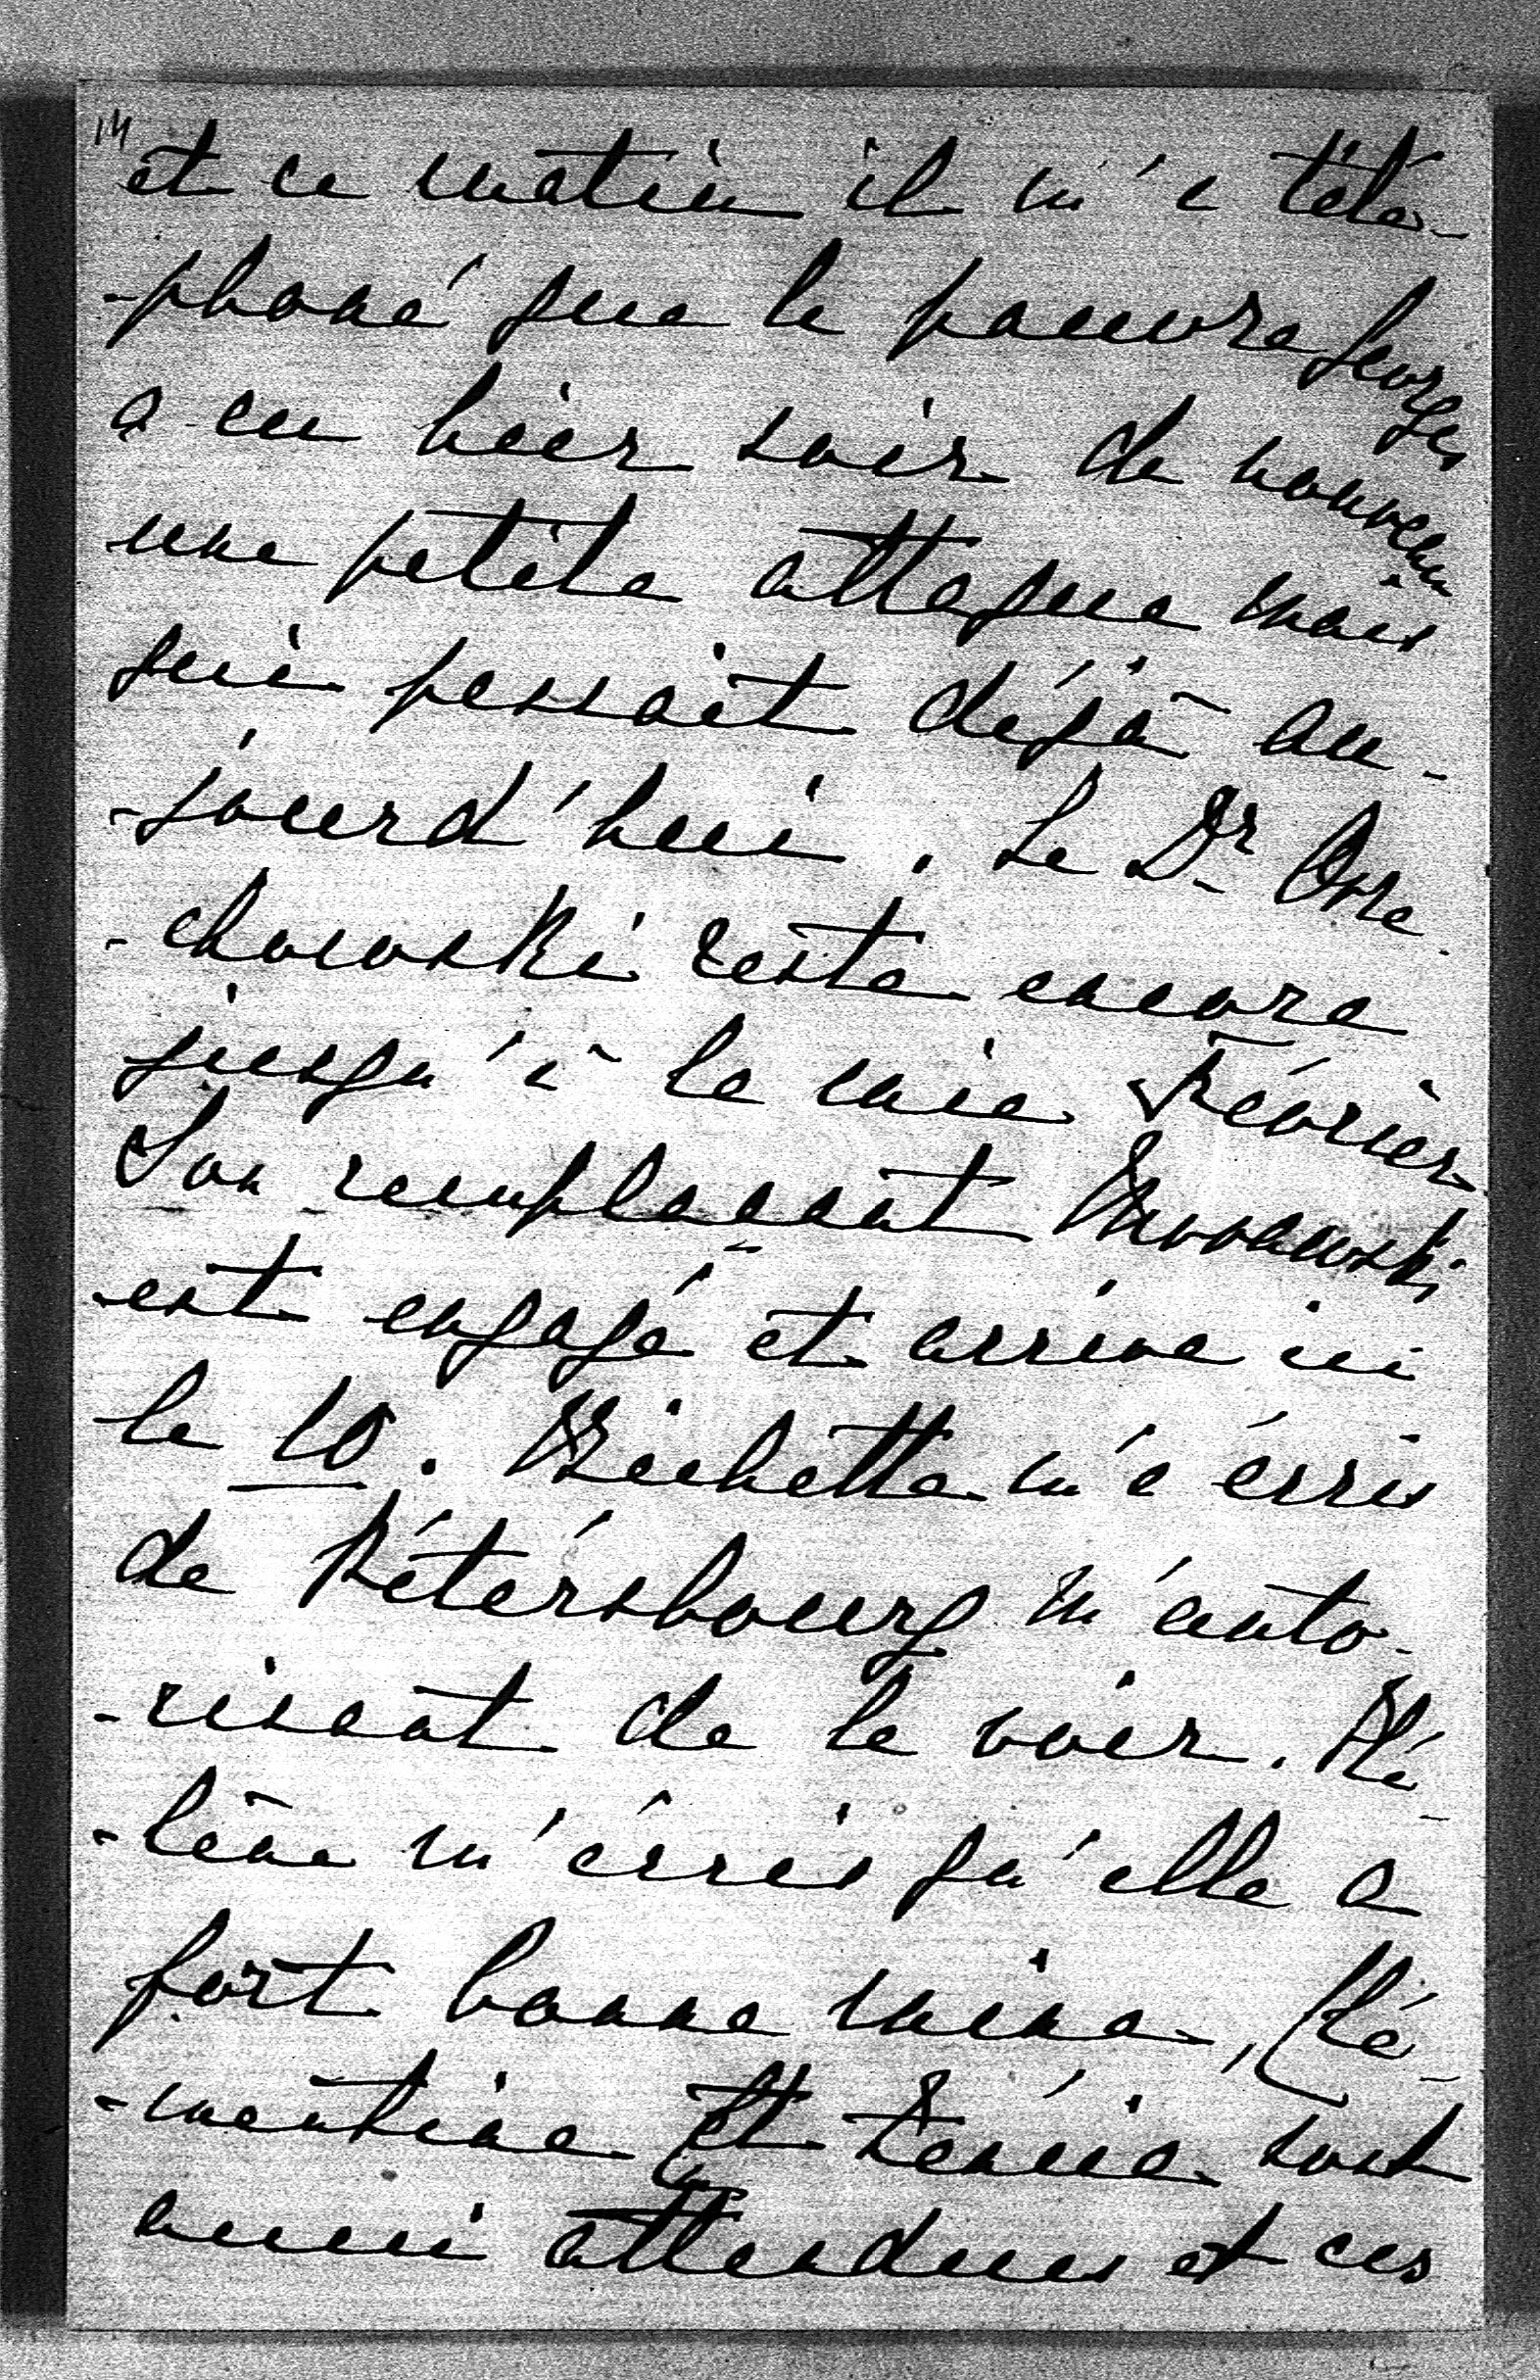 14
et ce matin il m'a télé-
-phoné que le pauvre Georges
a eu hier soir de nouveau
une petite attaque mais
qui passait déjà au-
-jourd'hui. Le Dr Orze
-chowski reste encore
jusqu'à la mie Février
Son remplaçant
est engagé et arrive ici
le 10. Bichette m'a écris
de Pétersbourg m'auto-
-risant de le voir. Hé-
-lène m'écris qu'elle a
fort bonne mine, Clé-
-mentine et la Renia sont
aussi attendues et ces